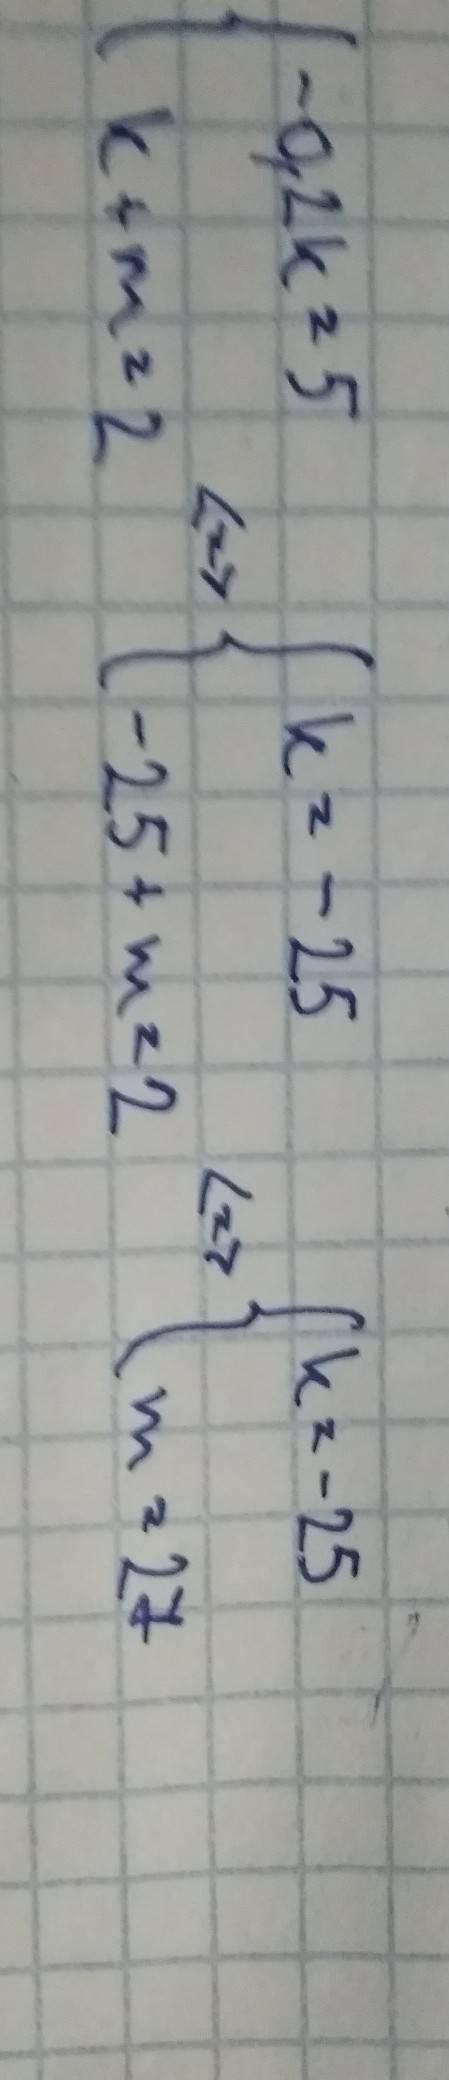 { -0,2k = 5
{ k + m = 2
<=>
{ k = -25
{ -25 + m = 2
<=>
{ k = -25
{ m = 27